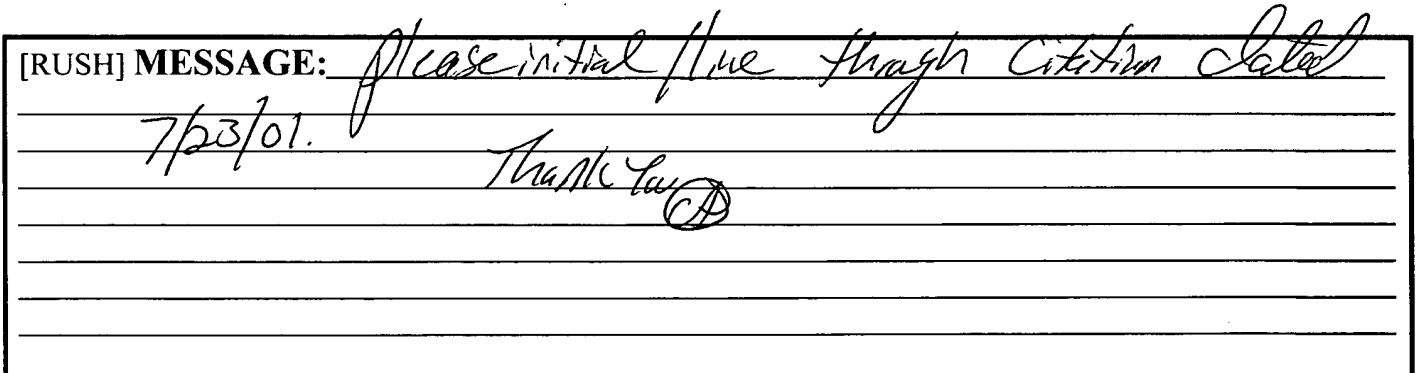 [RUSH] MESSAGE: please initial/line through Citation dated
7/23/01.
Thank You